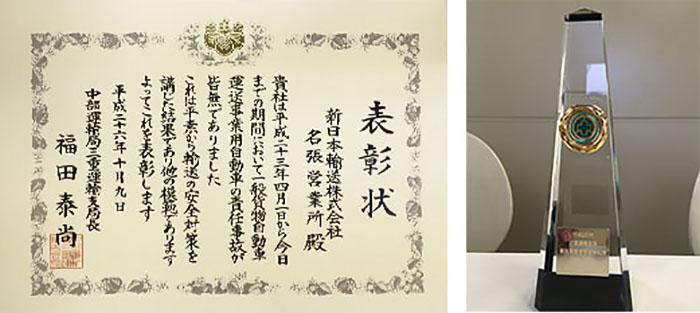 表彰状
新日本輸送株式会社
名張営業所 殿
貴社は平成二十三年四月一日から今日
までの期間において一般貨物自動車
運送事業用自動車の責任事故が
皆無でありました
これは平素から輸送の安全対策を
講じた結果であり他の模範であります
よってこれを表彰します
平成二十六年十月九日
中部運輸局三重運輸支局長
福田泰尚